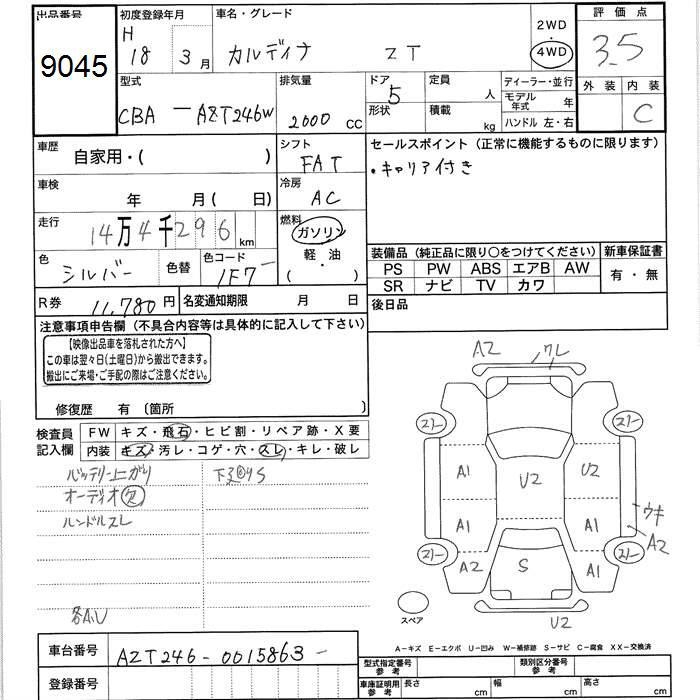 出品番号 初度登録年月 車名・グレード 2WD 評価点
9045 H 18 3月 カルディナ ZT ・ 4WD 3.5
型式 排気量 ドア 5 定員 人 ディーラー・並行 外装 内装
CBA-AZT246W 2000 cc 形状 積載 kg モデル年式 年 C
ハンドル 左・右
車歴 自家用・( ) シフト FAT セールスポイント (正常に機能するものに限ります)
車検 年 月( 日) 冷房 AC ・キャリア付き
走行 14万4千296km 燃料 ガソリン
軽・油
( )
色 シルバー 色替 色コード 1F7 装備品 (純正品に限り○をつけてください) 新車保証書
PS PW ABS エアB AW 有・無
SR ナビ TV カワ
R券 11,780円 名変通知期限 月 日 後日品
注意事項申告欄 (不具合内容等は具体的に記入して下さい)
【映像出品車を落札された方へ】
この車は翌々日(土曜日)から搬出できます。
搬出にご来場・ご手配の際はご注意ください。
修復歴 有 〔箇所 〕
検査員記入欄 FW キズ・飛石・ヒビ割・リペア跡・X要
内装 キズ・汚レ・コゲ・穴・スレ・キレ・破レ
バッテリー上がり
オーディオ欠
ハンドルスレ
各A.U
A2 ワレ
スリー スリー
A1 U2 U2
A1 A1 ウキ
A2
スリー スリー
A2 S A1
U2
スペア
A-キズ E-エクボ U-凹み W-補修跡 S-サビ C-腐食 XX-交換済
車台番号 AZT246-0015863-
登録番号
型式指定番号 参考 類別区分番号 参考
車庫証明用 参考 長さ cm 幅 cm 高さ cm